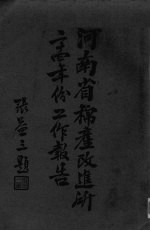 河南省棉產改進所
二十四年份工作報告
張益三題